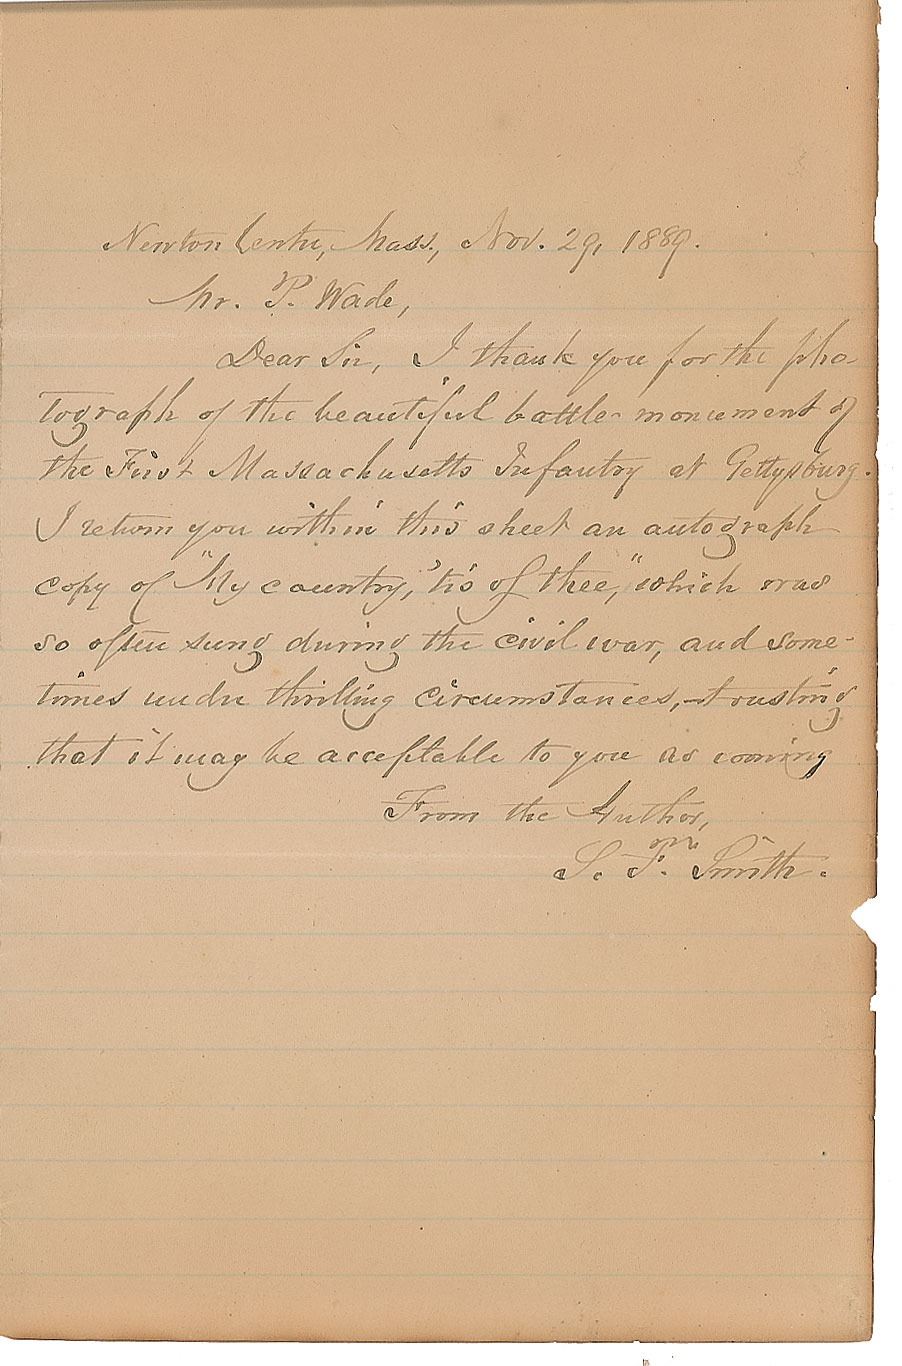 Newton Centre, Mass., Nov. 29, 1889.
Mr. P. Wade,
Dear Sir, I thank you for the pho-
tograph of the beautiful battle-monument of
the First Massachusetts Infantry at Gettysburg.
I return you within this sheet an autograph
copy of "My country, 'tis of thee," which was
so often sung during the civil war, and some-
times under thrilling circumstances,—trusting
that it may be acceptable to you as coming
From the Author,
S. F. Smith.